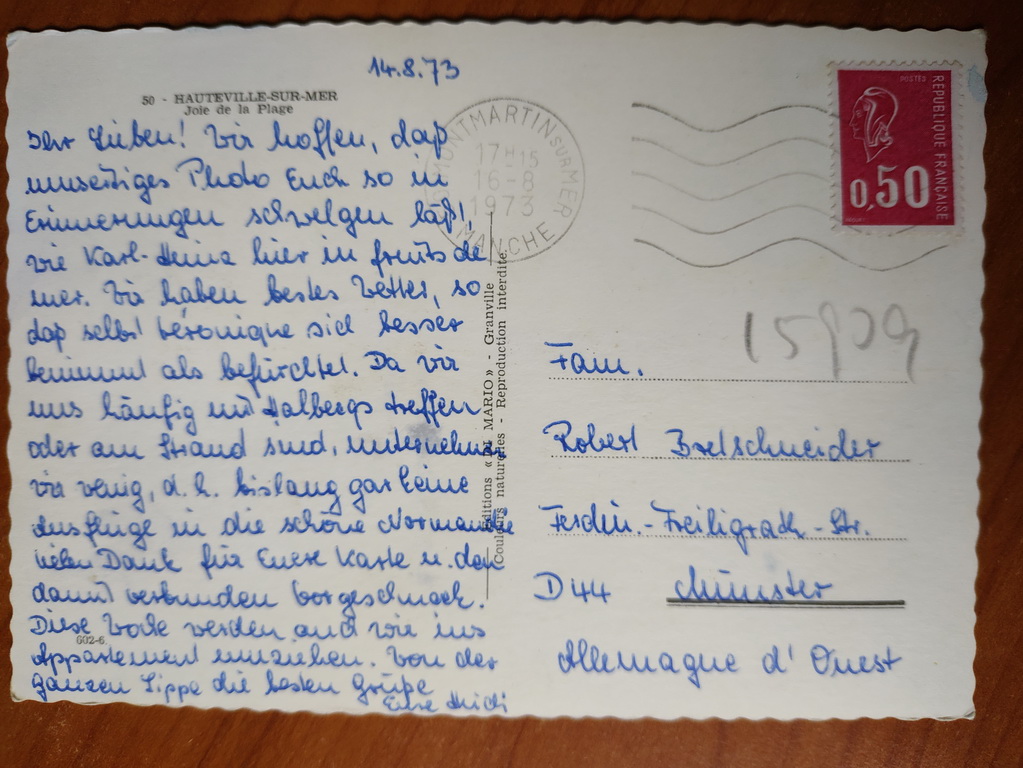 14.8.73
50 - HAUTEVILLE-SUR-MER
Joie de la Plage
Ihr Lieben! Wir hoffen, daß
umseitiges Photo Euch so in
Erinnerungen schwelgen läßt,
wie Karl-Heinz hier in fruits de
mer. Wir haben bestes Wetter, so
daß selbst Véronique sich besser
benimmt als befürchtet. Da wir
uns häufig mit Halbergs treffen
oder am Strand sind, unternehmen
wir wenig, d.h. bislang gar keine
Ausflüge in die schöne Normandie
Vielen Dank für Eure Karte u. den
damit verbundenen Vorgeschmack.
Diese Woche werden auch wir ins
Appartement umziehen. Von der
ganzen Sippe die besten Grüße
Eure Heidi
602-6
Editions « MARIO » - Granville
(Couleurs naturelles - Reproduction interdite)
MONTMARTIN SUR MER
17H15
16-8
1973
MANCHE
POSTES
REPUBLIQUE FRANÇAISE
0,50
Fam.
Robert Bretschneider
Ferdin.-Freiligrath-Str.
D 44 Münster
Allemagne d'Ouest